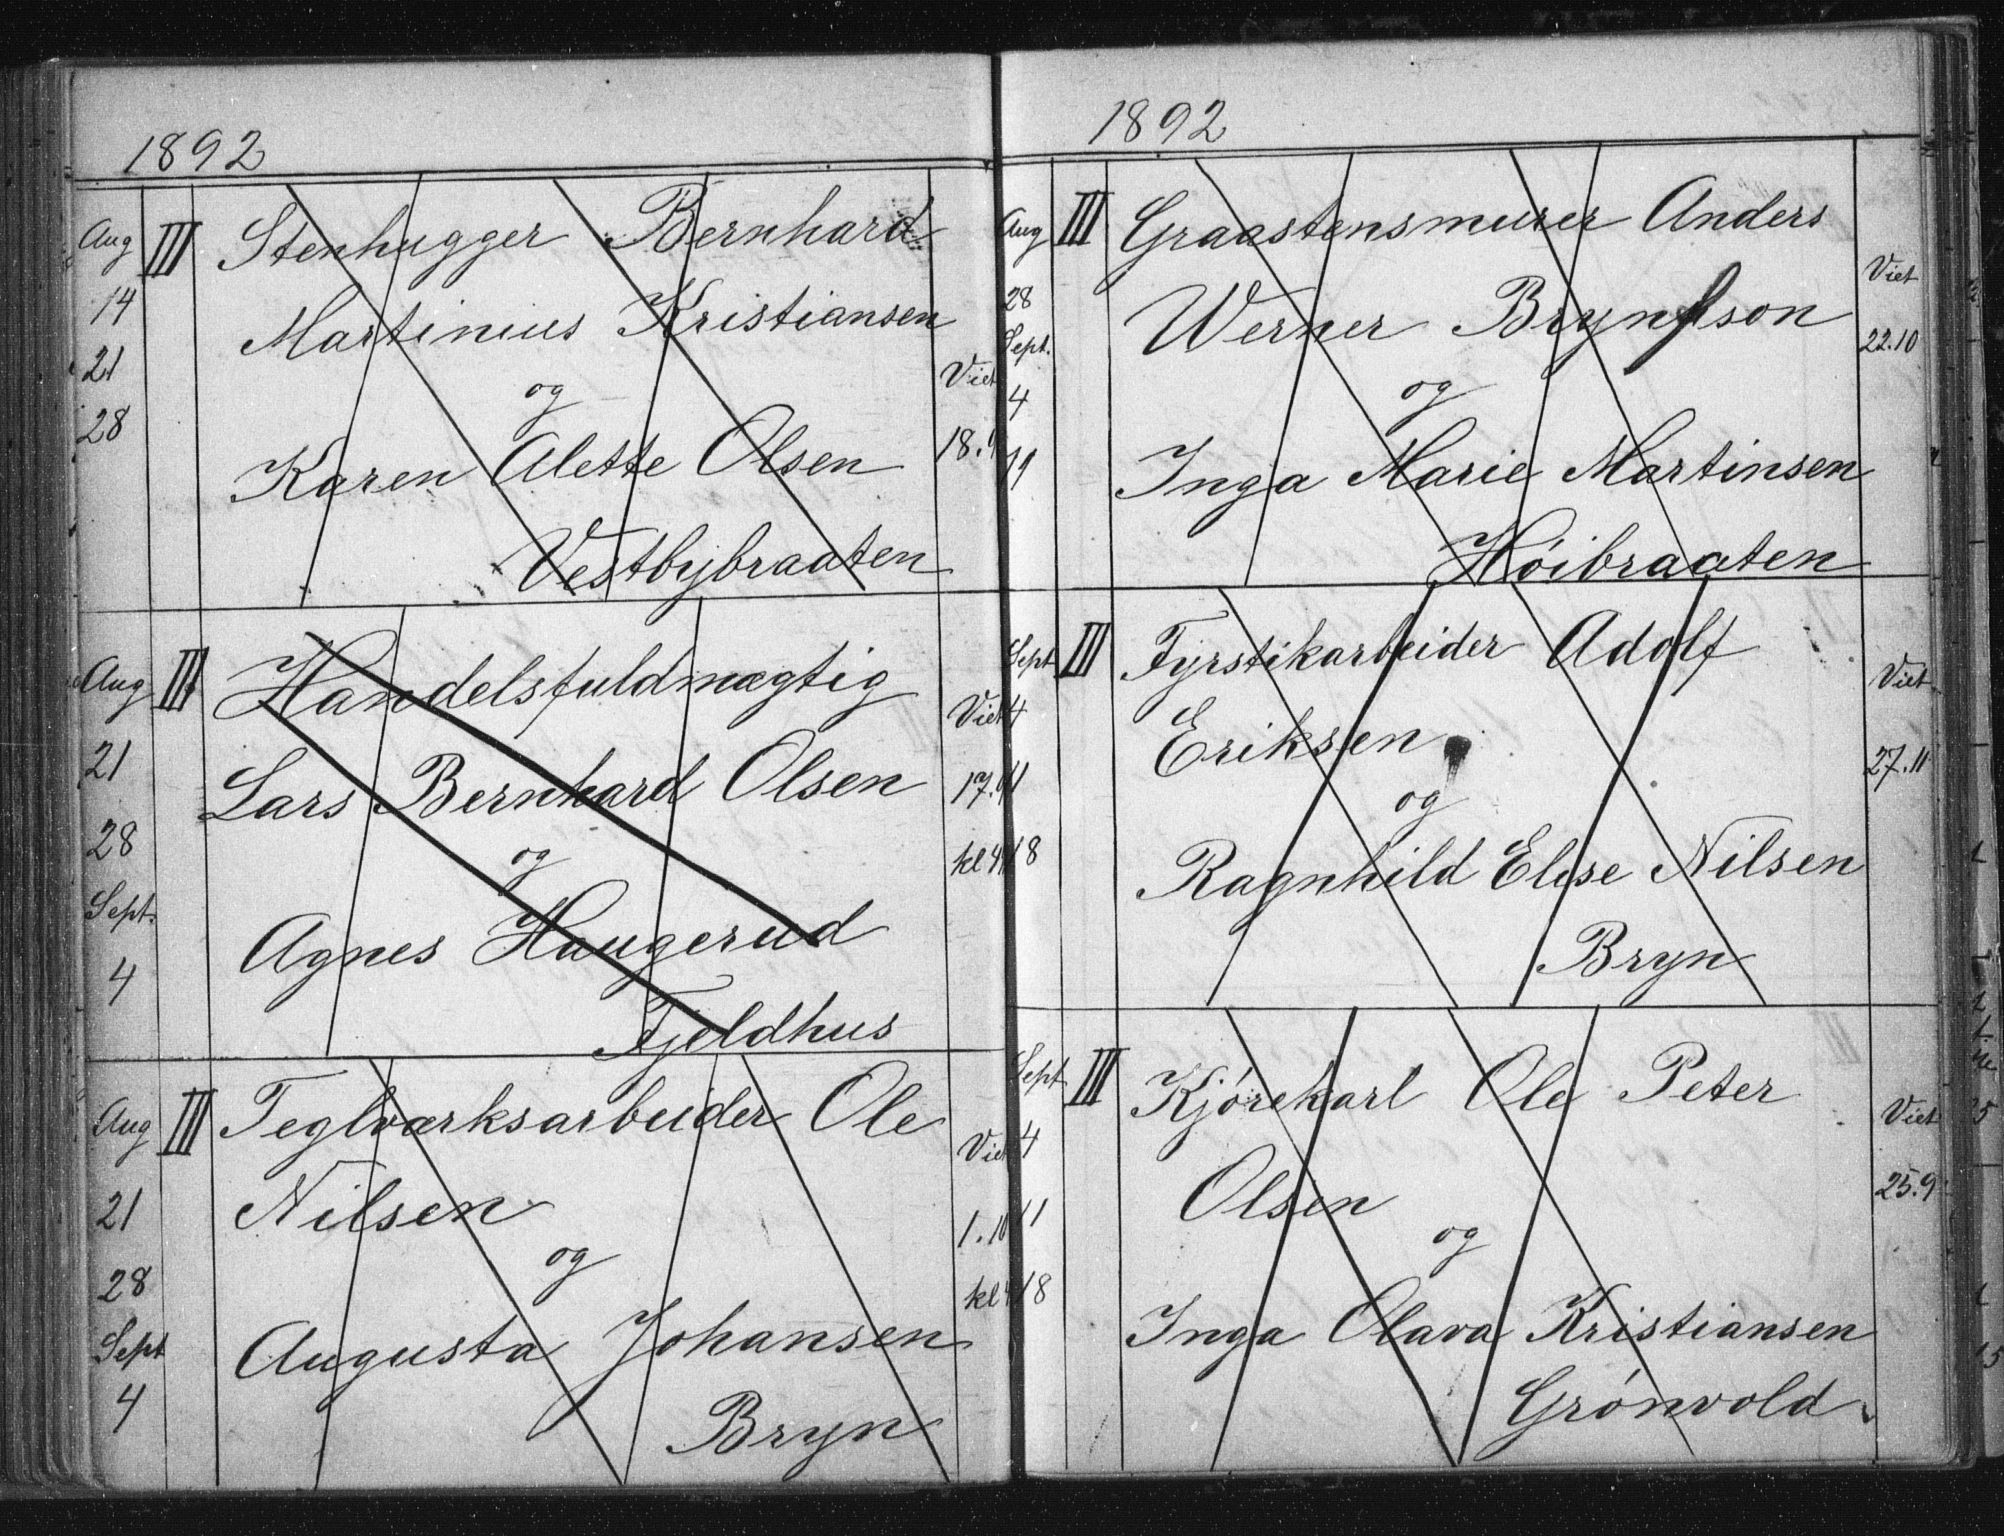 1892
Aug
14
21
28
III
Stenhugger Bernhard
Martinius Kristiansen
og
Karen Alette Olsen
Vestbybraaten
Viet
18.9
Aug
21
28
Sept.
4
III
Handelsfuldmægtig
Lars Bernhard Olsen
og
Agnes Haugerud
Fjeldhus
Viet
17.9
kl 4
Aug
21
28
Sept
4
III
Teglværksarbeider Ole
Nilsen
og
Augusta Johansen
Bryn
Viet
1.10
kl
1892
Aug
28
Sept.
4
11
III
Graastensmurer Anders
Werner Brynfson
og
Inga Marie Martinsen
Høibraaten
Viet
22.10
Sept
4
11
18
III
Fyrstikarbeider Adolf
Eriksen
og
Ragnhild Elise Nilsen
Bryn
Viet
27.11
Sept
4
11
18
III
Kjørekarl Ole Peter
Olsen
og
Inga Olava Kristiansen
Grønvold
Viet
25.9